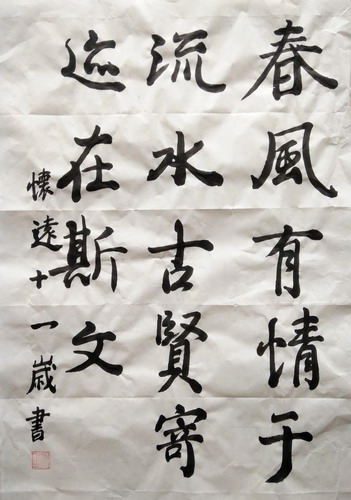 春風有情于
流水古賢寄
迹在斯文
懷遠十一歲書